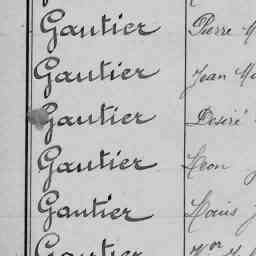 Gautier Pierre
Gautier Jean
Gautier Désiré
Gautier Léon
Gautier Louis
Gautier